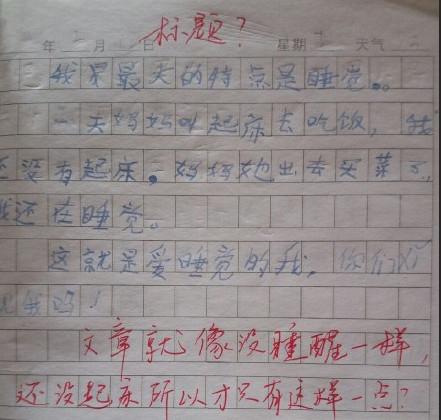 标题?
年 月 日 星期 天气
我是最大的特点是睡觉。
一天妈妈叫起床去吃饭，我
还没有起床。妈妈她出去买菜了，
我还在睡觉。
这就是爱睡觉的我，你们
我吗！
文章就像没睡醒一样，
还没起床所以才只有这样一点？